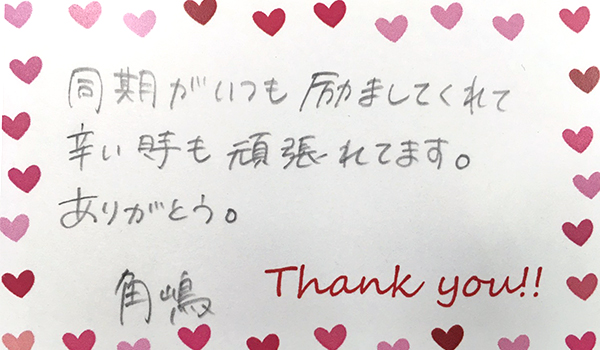 同期がいつも励ましてくれて
辛い時も頑張れてます。
ありがとう。
角嶋
Thank you!!